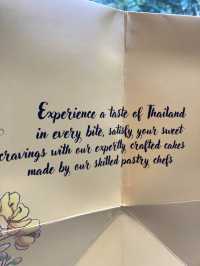 Experience a taste of Thailand
in every bite, satisfy your sweet
cravings with our expertly crafted cakes
made by our skilled pastry chefs